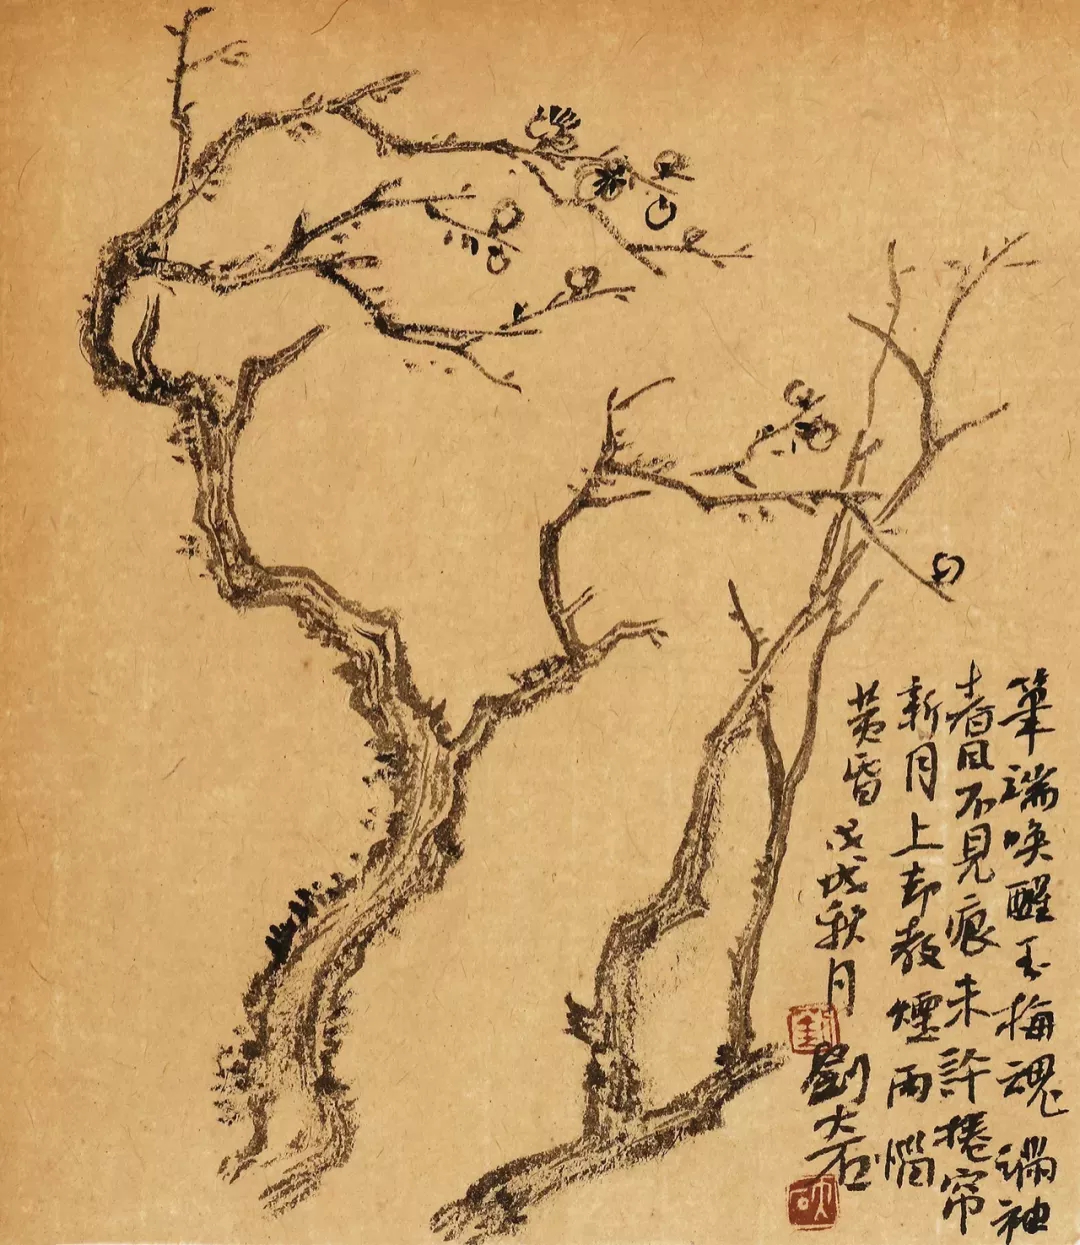 筆端唤醒玉梅魂滿袖
春風不見痕未許捲帘
新月上却教煙雨惱
黄昏 戊戌秋月
劉大石